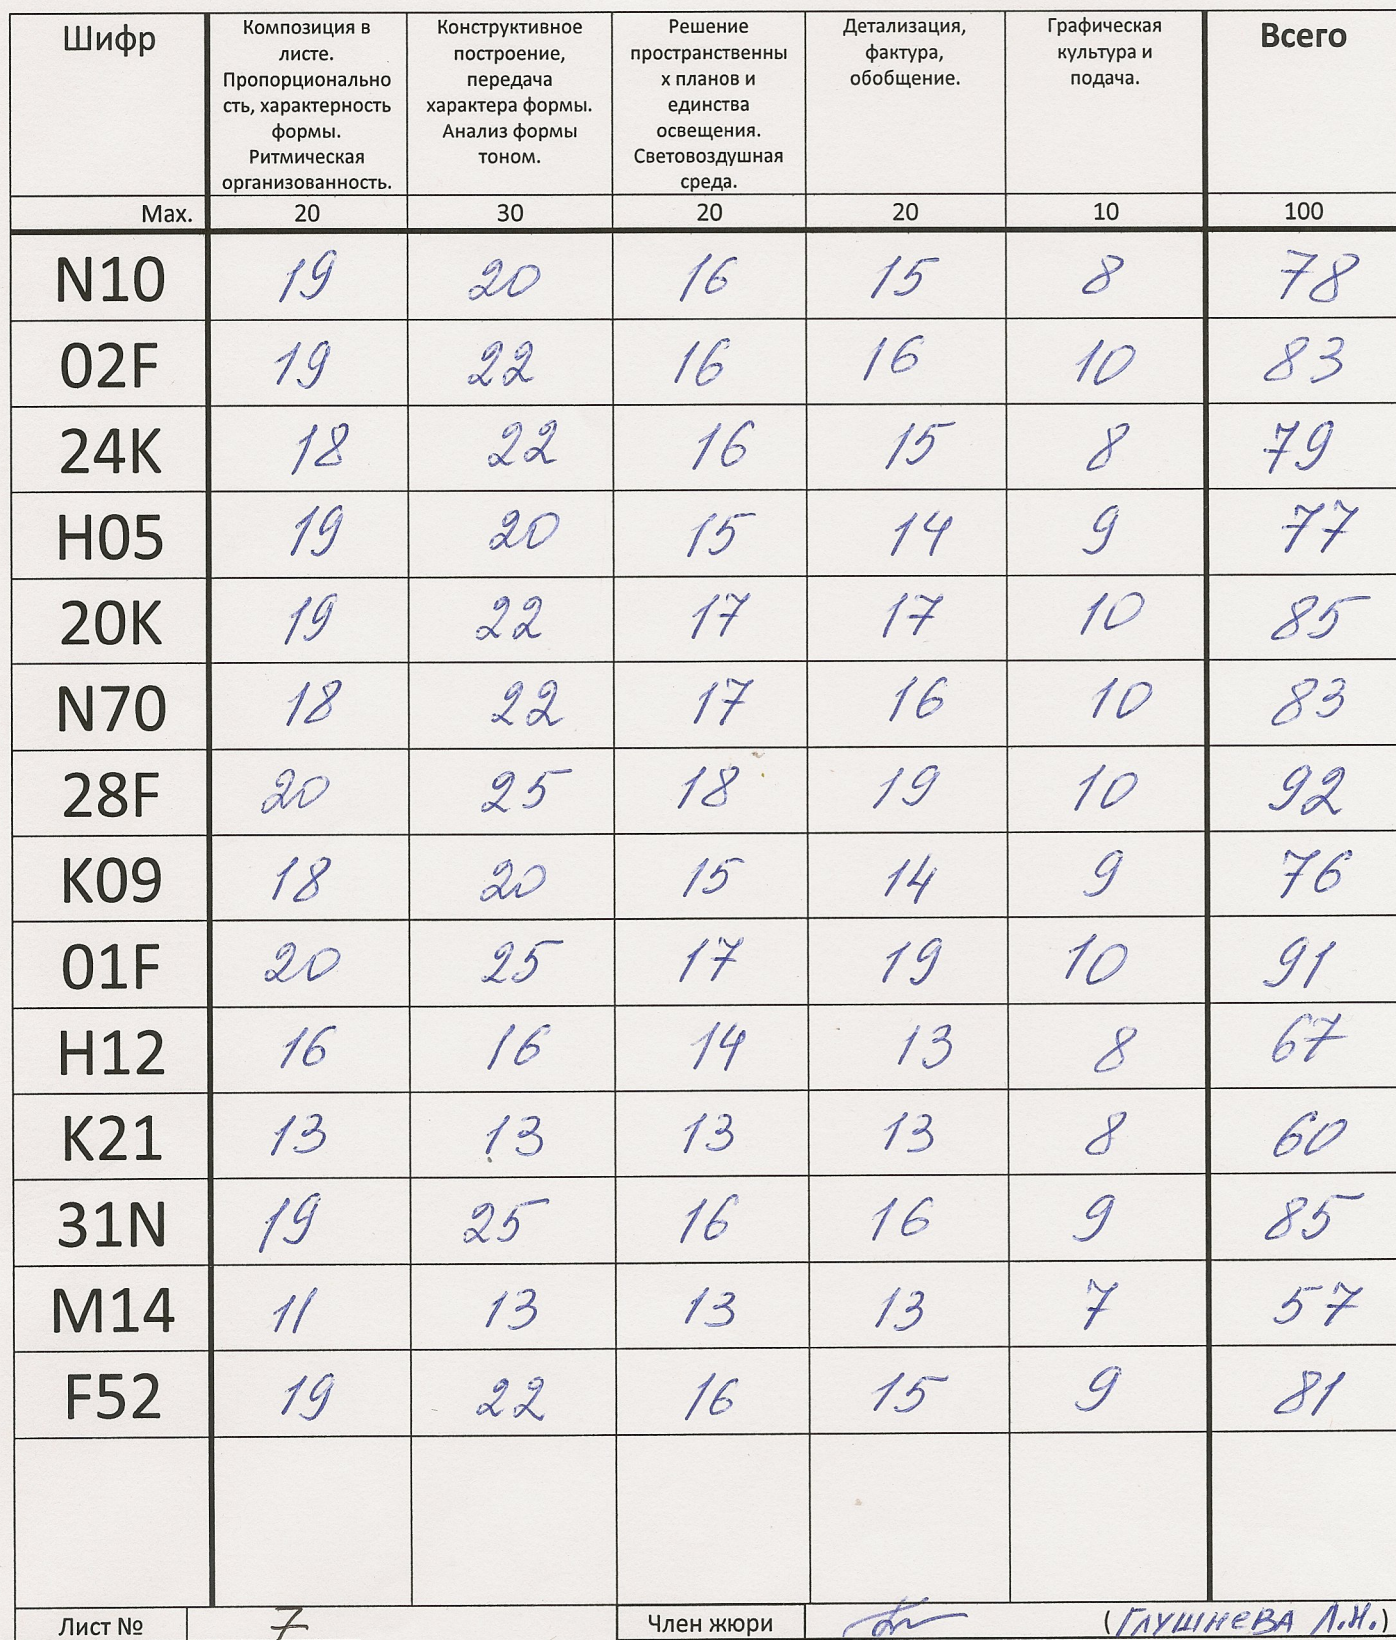 Шифр
Композиция в
листе.
Пропорционально
сть, характерность
формы.
Ритмическая
организованность.
Конструктивное
построение,
передача
характера формы.
Анализ формы
тоном.
Решение
пространственны
х планов и
единства
освещения.
Световоздушная
среда.
Детализация,
фактура,
обобщение.
Графическая
культура и
подача.
Всего
Max. 20 30 20 20 10 100
N10 19 20 16 15 8 78
02F 19 22 16 16 10 83
24K 18 22 16 15 8 79
H05 19 20 15 14 9 77
20K 19 22 17 17 10 85
N70 18 22 17 16 10 83
28F 20 25 18 19 10 92
K09 18 20 15 14 9 76
01F 20 25 17 19 10 91
H12 16 16 14 13 8 67
K21 13 13 13 13 8 60
31N 19 25 16 16 9 85
M14 11 13 13 13 7 57
F52 19 22 16 15 9 81
Лист № 7 Член жюри (Глушнева Л.Н.)